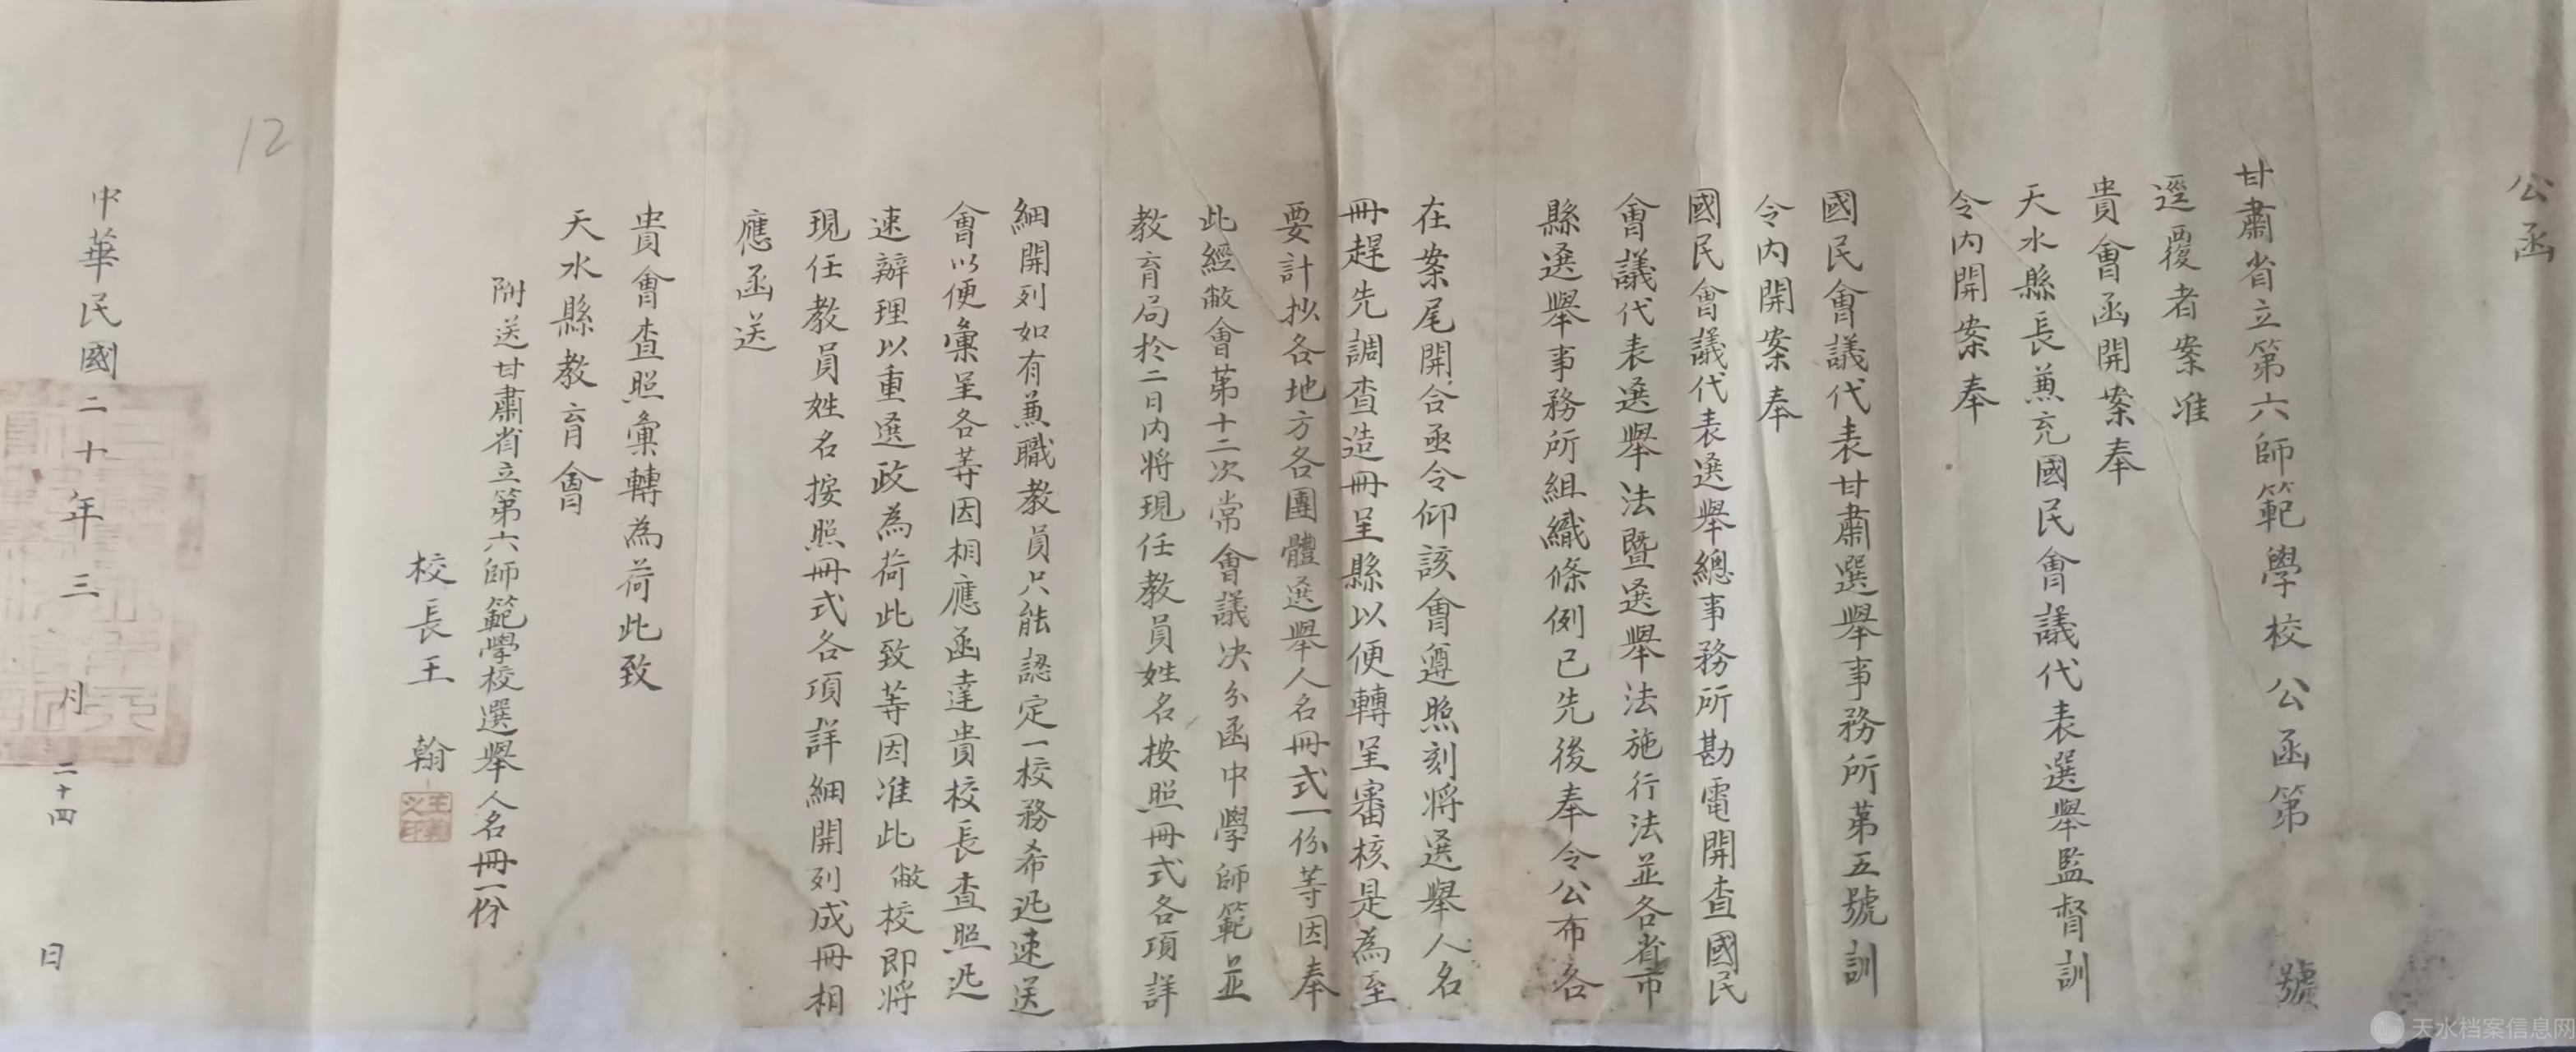 公函
甘肅省立第六師範學校公函第　號
逕覆者案准
貴會函開案奉
天水縣長兼充國民會議代表選舉監督訓
令內開案奉
國民會議代表甘肅選舉事務所第五號訓
令內開案奉
國民會議代表選舉總事務所勘電開查國民
會議代表選舉法暨選舉法施行法並各省市
縣選舉事務所組織條例已先後奉令公布各
在案尾開合亟令仰該會遵照刻將選舉人名
冊趕先調查造冊呈縣以便轉呈審核是為至
要計抄各地方各團體選舉人名冊式一份等因奉
此經敝會第十二次常會議決分函中學師範並
教育局於二日內將現任教員姓名按照冊式各項詳
細開列如有兼職教員只能認定一校務希迅速送
會以便彙呈各等因相應函達貴校長查照迅
速辦理以重選政為荷此致等因准此敝校即將
現任教員姓名按照冊式各項詳細開列成冊相
應函送
貴會查照彙轉為荷此致
天水縣教育會
附送甘肅省立第六師範學校選舉人名冊一份
校長王翰
王翰之印
12
中華民國二十年三月二十四日
天水档案信息网